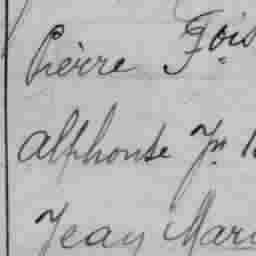 Pièrre Fois
Alphonse Jn
Jean Mari